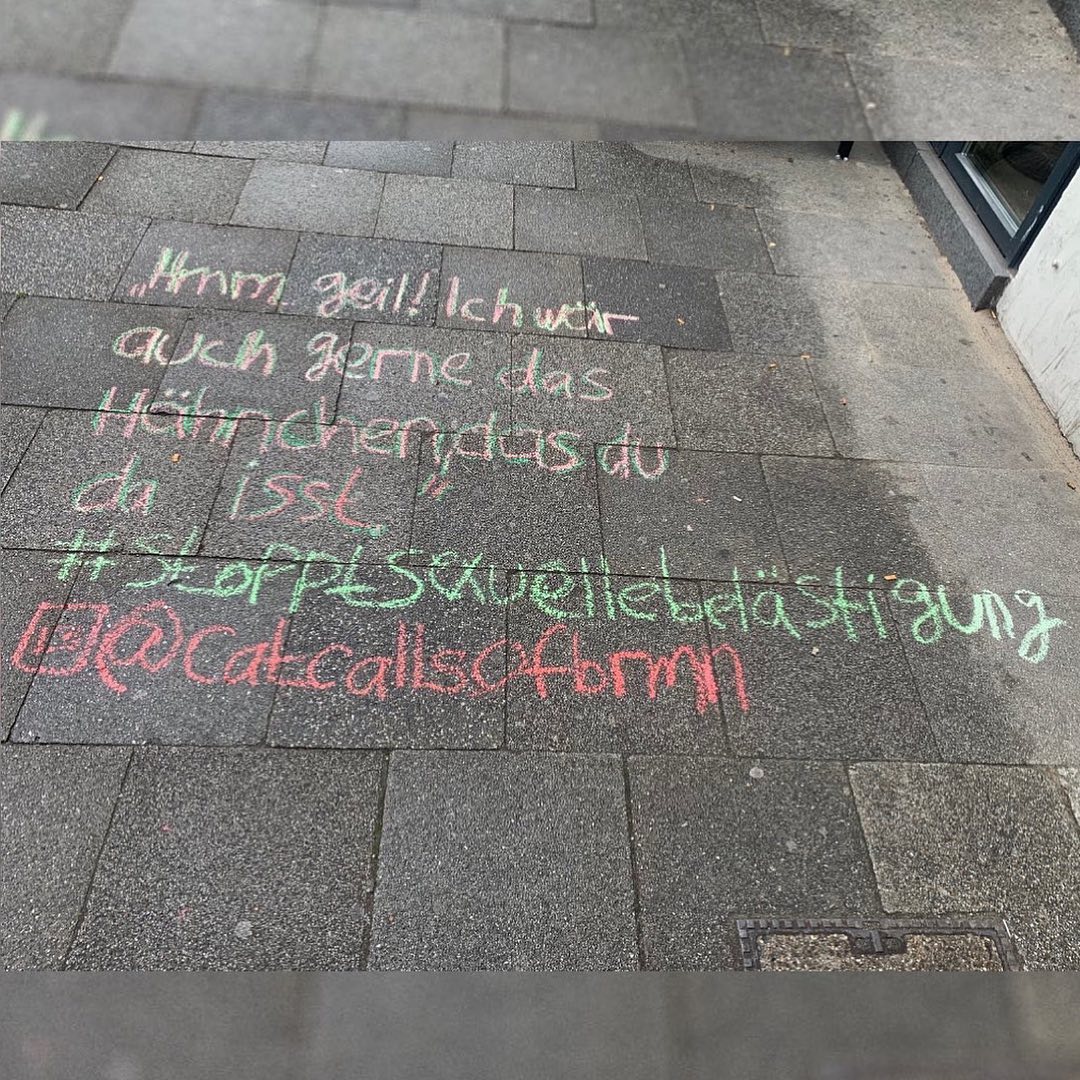 „Hmm geil! Ich wär
auch gerne das
Hähnchen, das du
da isst."
#stopptsexuellebelästigung
@catcallsofbrmn